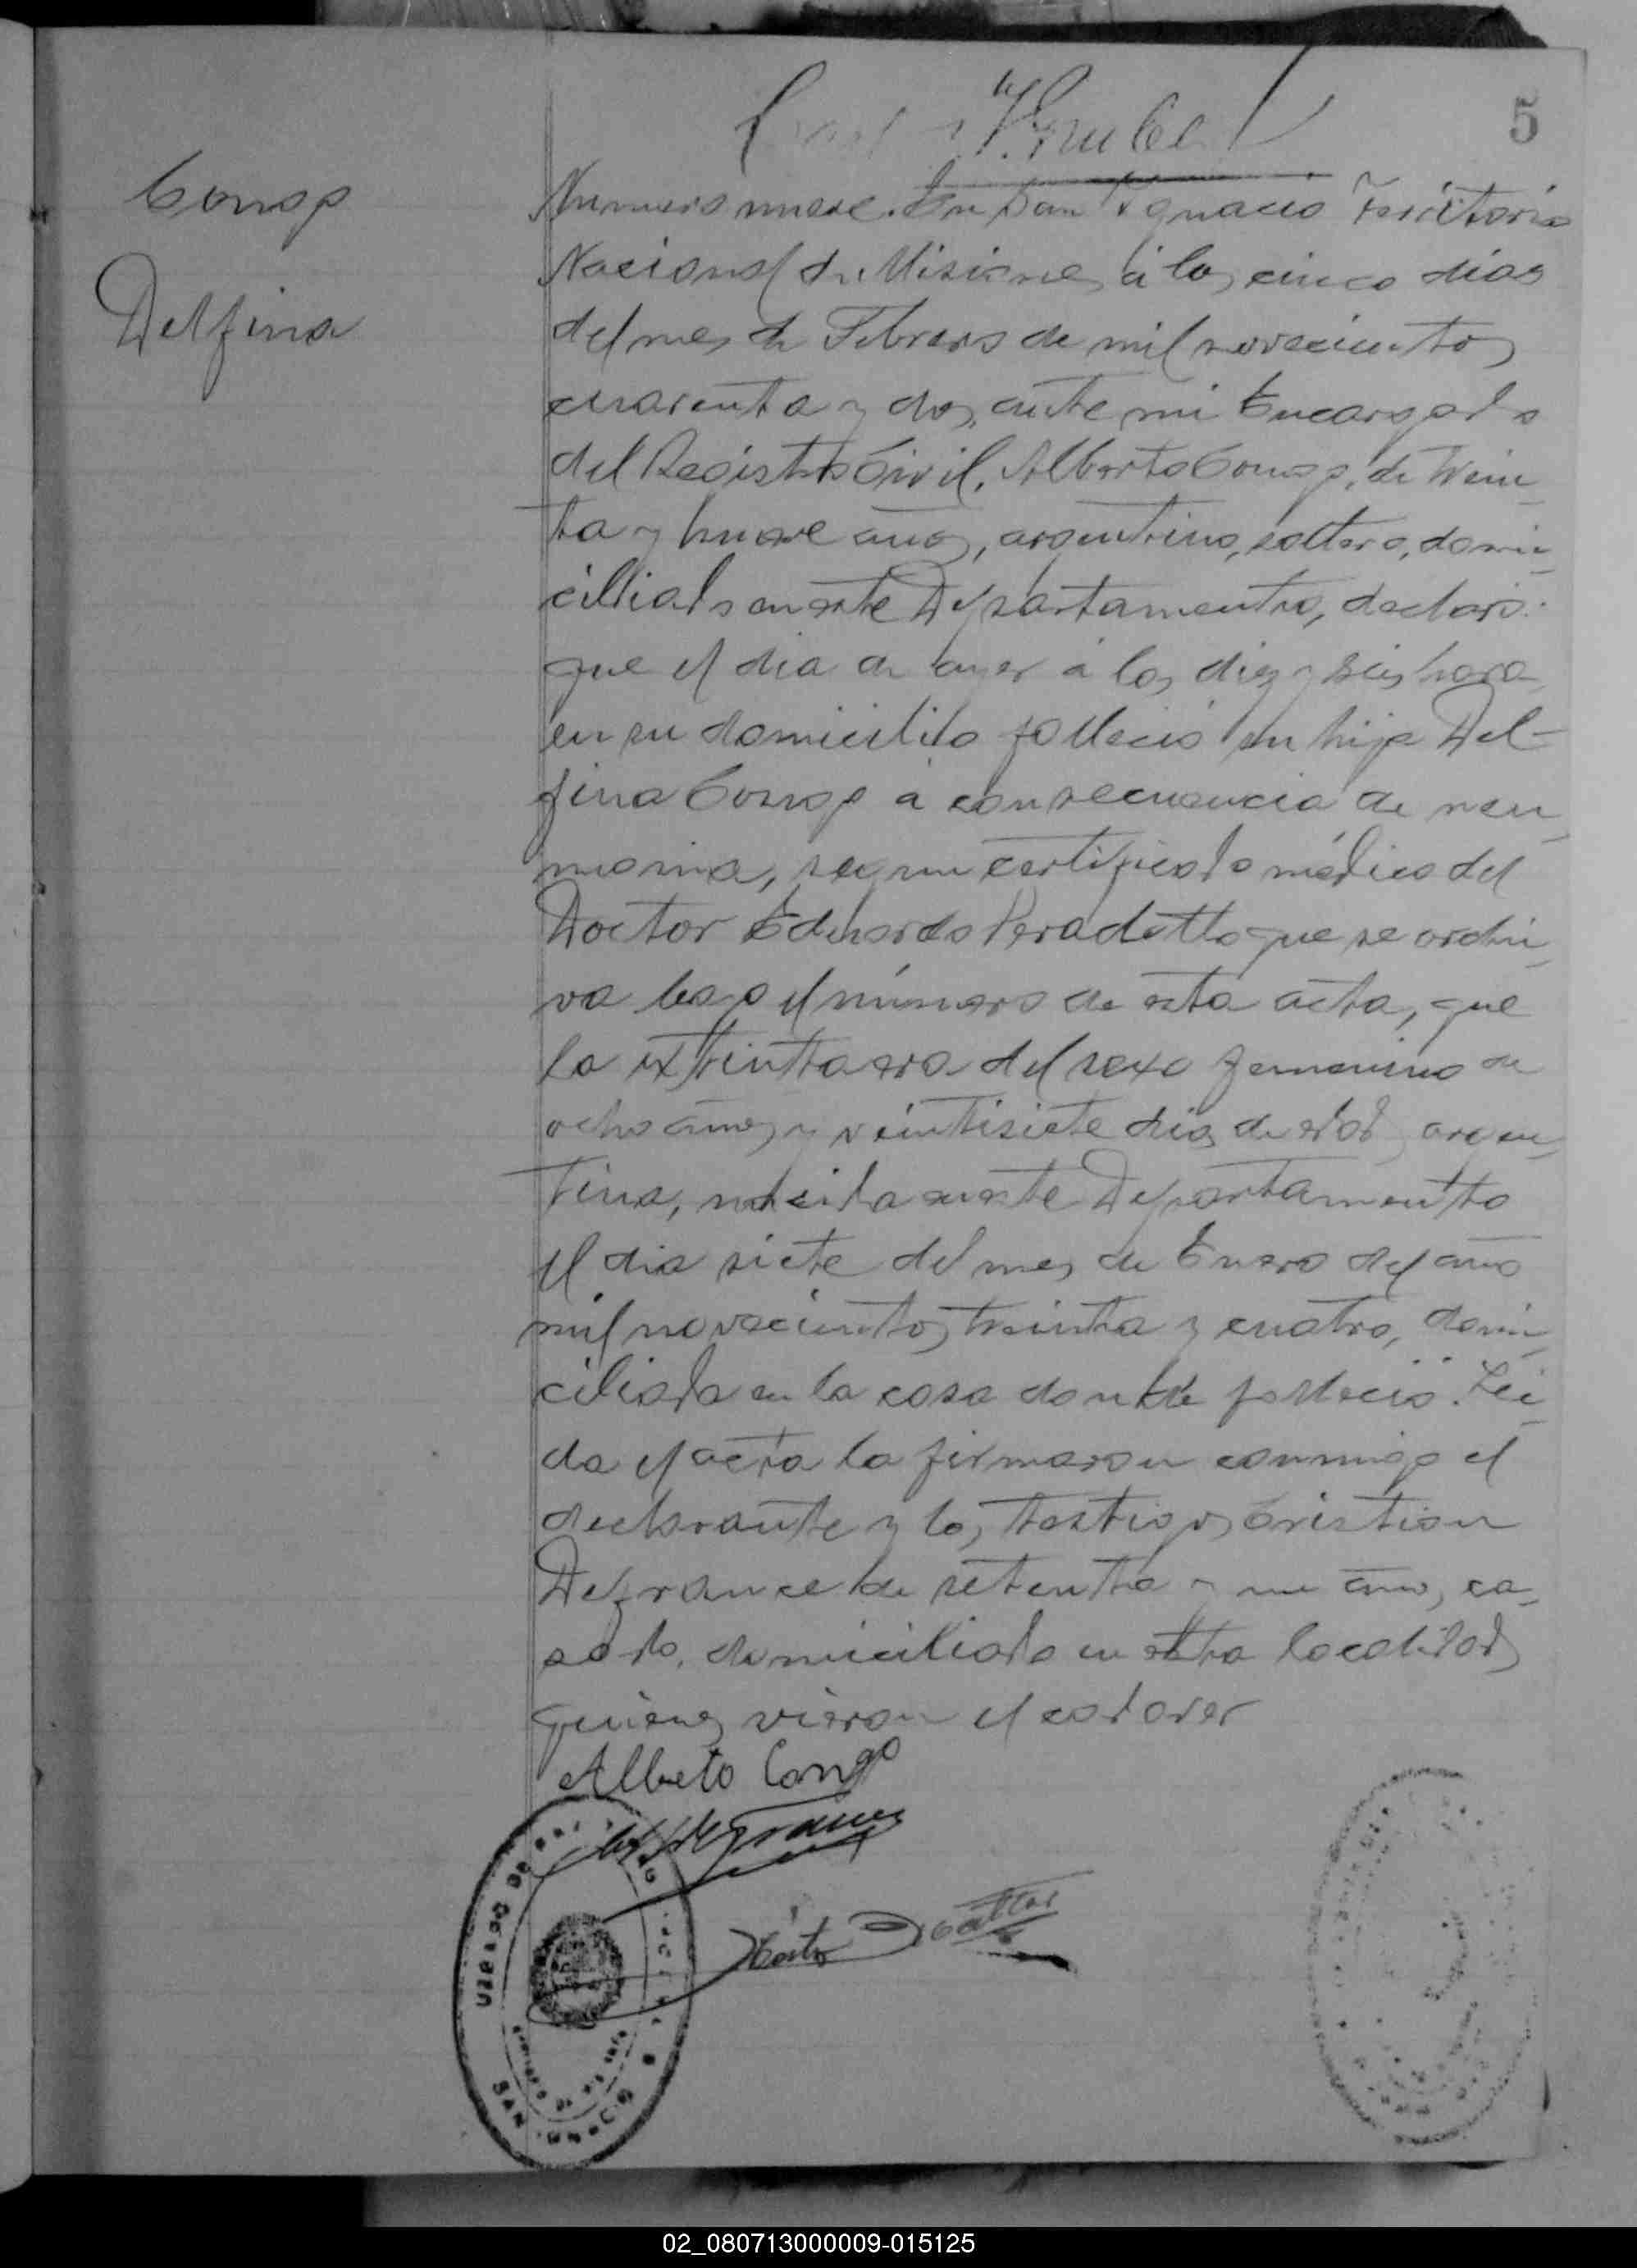 5
Congo
Delfina
Numero nueve. En San Ignacio Territorio
Nacional de Misiones, á los cinco dias
del mes de Febrero de mil novecientos
cuarenta y dos, ante mi Encargado
del Registro Civil, Alberto Congo, de trein-
ta y nueve años, argentino, soltero, domi-
ciliado en este Departamento, declaró:
que el dia de ayer á las diez y seis horas
en su domicilio falleció su hija Del-
fina Congo á consecuencia de neu-
monia, segun certificado médico del
Doctor Eduardo Peradotto que se archi-
va bajo el número de esta acta, que
la extinta era del sexo femenino de
ocho años y veintisiete dias de edad, argen-
tina, nacida en este Departamento
el dia siete del mes de Enero del año
mil novecientos treinta y cuatro, domi-
ciliada en la casa donde falleció. Lei-
da el acta la firmaron conmigo el
declarante y los testigos Cristian
Defrance de setenta y un años, ca-
sado, domiciliado en esta localidad
quienes vieron el cadaver
Alberto Congo
SAN IGNACIO
02_080713000009-015125